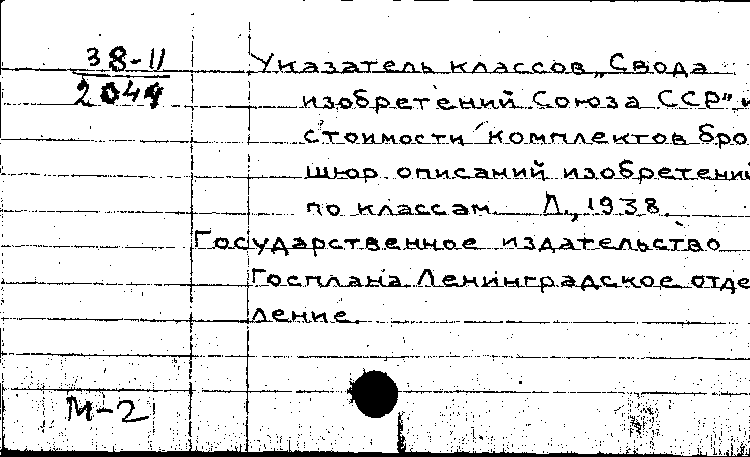 38-11
2044
Указатель классов „Свода
изобретений Союза ССР" и
стоимости комплектов бро
шюр описаний изобретений
по классам. Л., 1938.
Государственное издательство
Госплана Ленинградское отде
ление.
М-2